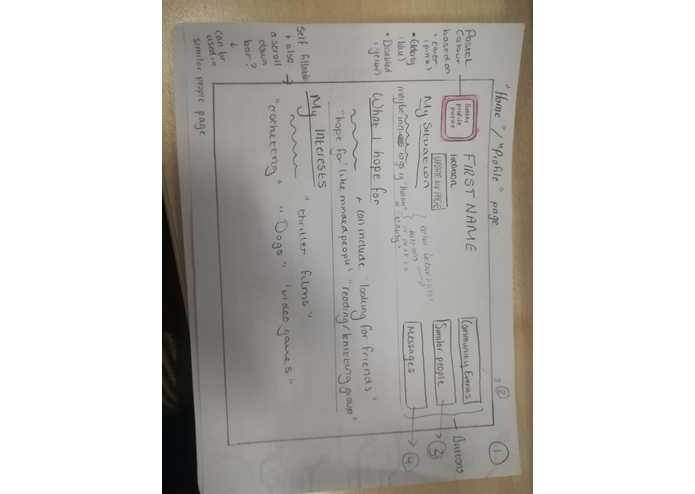 "Home" / "Profile" page
1.
Pastel
Colour
based on
• carer
(pink)
• Elderly
(blue)
• Disabled
(yellow)
self fillable
+ also →
a scroll
down
bar?
↓
can be
used in
similar people page
profile
picture
FIRST NAME
location
UPDATE MY PAGE
My Situation
maybe
What I hope for
+ can include "looking for friends"
"hope for like minded people" "reading/knitting group"
My Interests
"thriller films"
"crocheting" "Dogs" "video games"
Community Events
→ 2
Similar people
→ 3
Messages
→ 4
Buttons